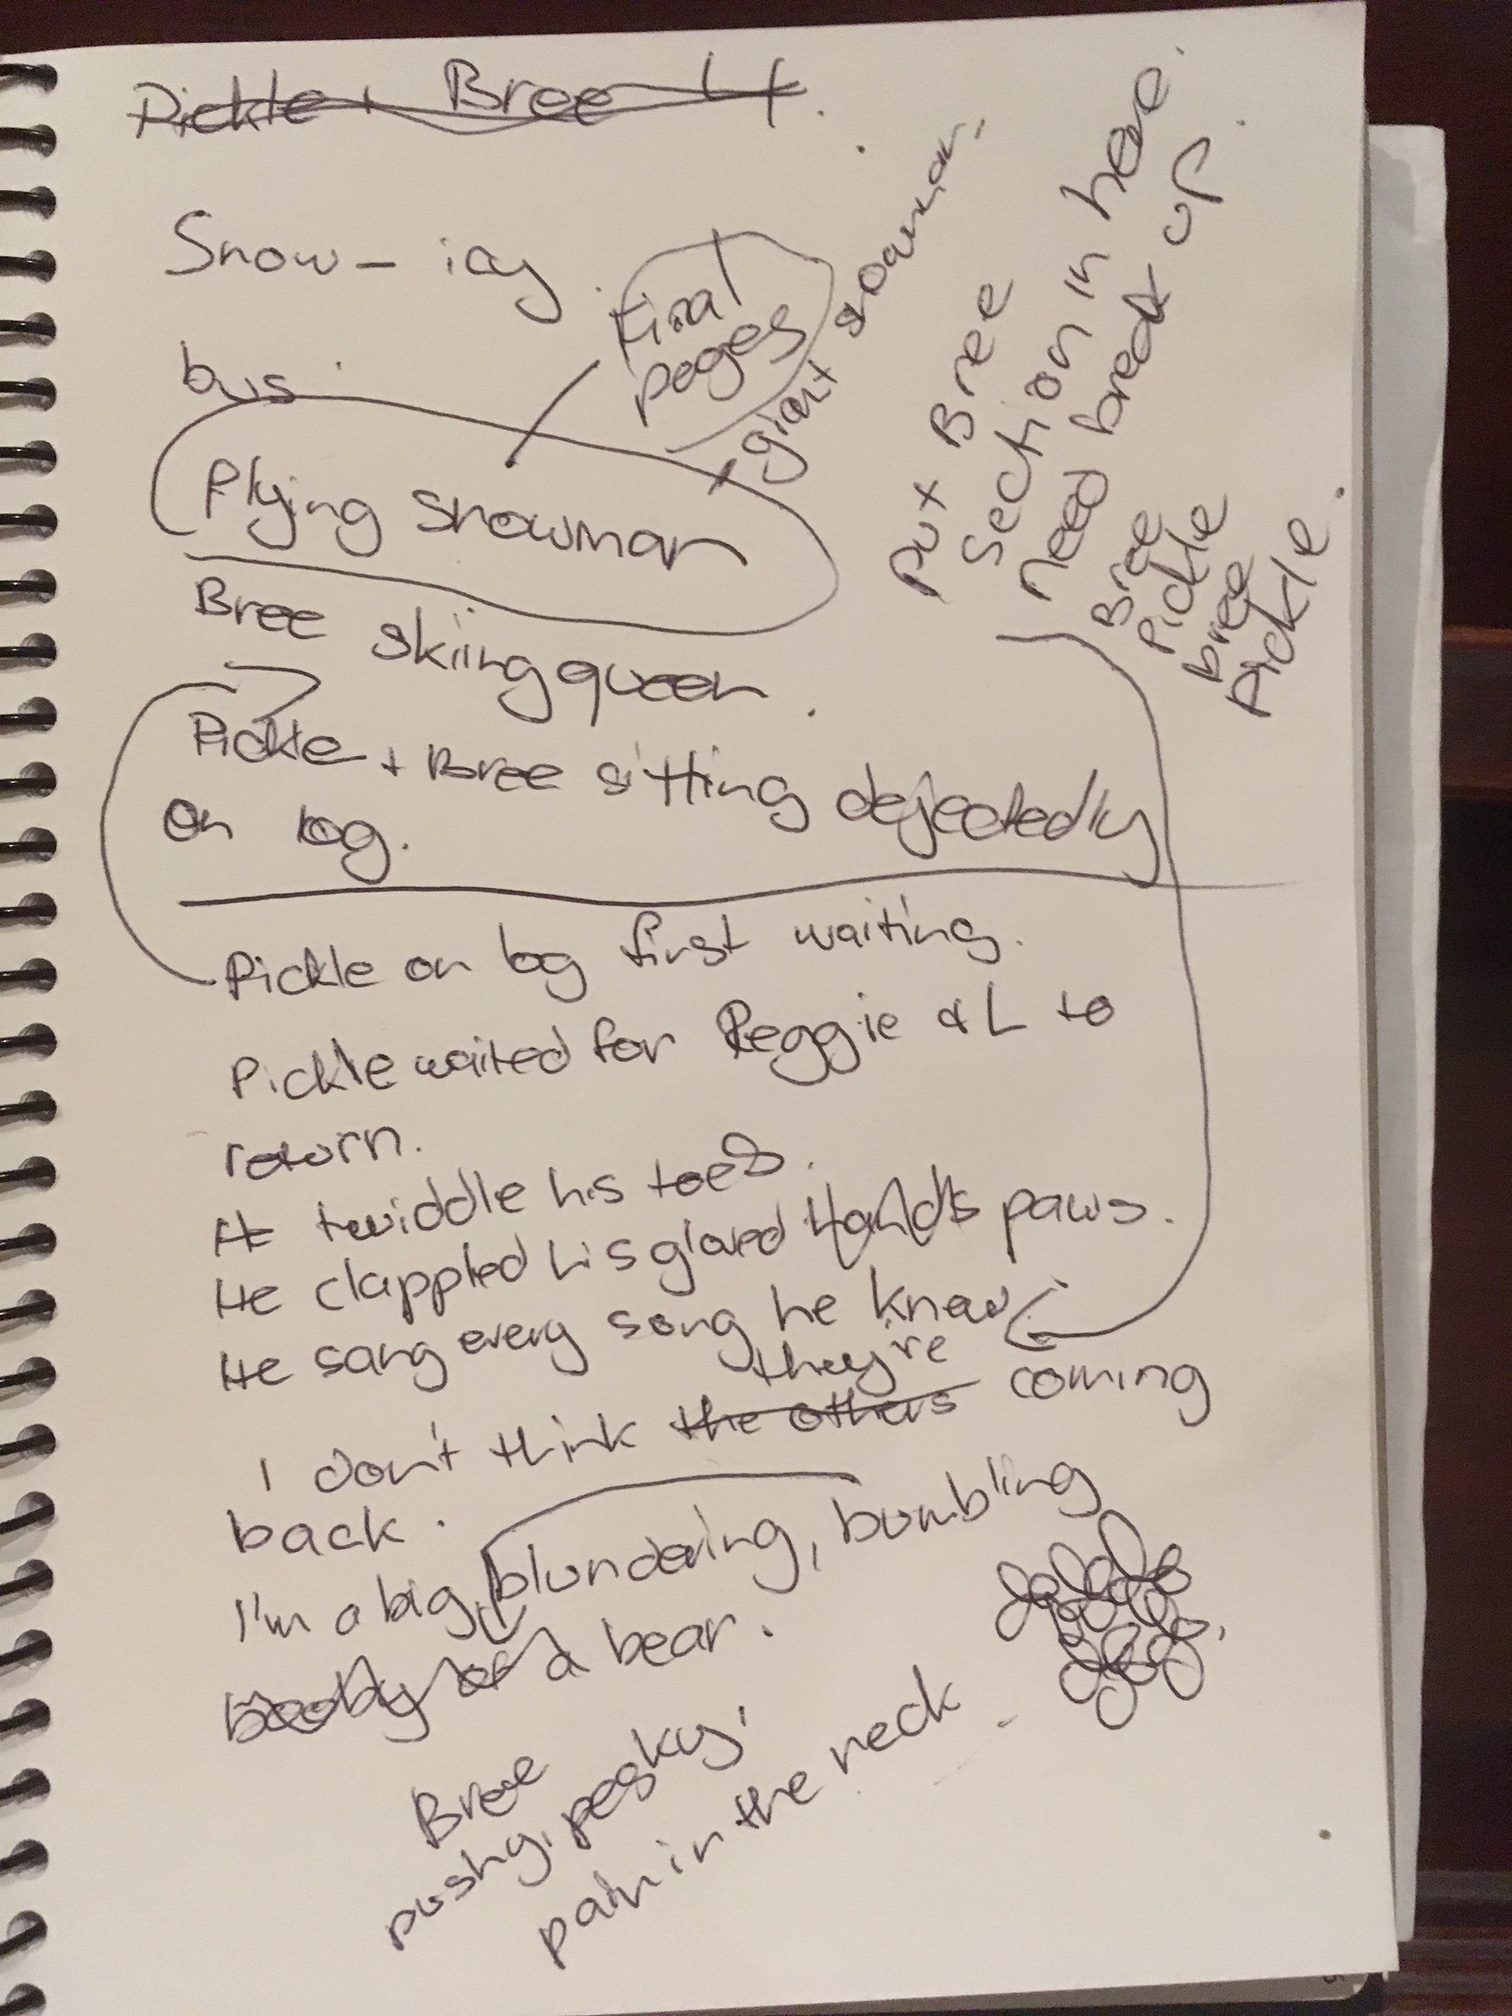 Pickle + Bree 4.
Snow - icy
bus.
Final
pages
+ giant snowman.
Flying snowman
Bree skiing queen.
Pickle + Bree sitting dejectedly
on log.
Put Bree
section in here.
Need break up.
Bree
Pickle
bree
pickle.
Pickle on log first waiting.
Pickle waited for Reggie & L to
return.
He twiddle his toes.
He clappled his gloved Hands paws.
He sang every song he knew.
they're
I don't think the others coming
back.
I'm a big, blundering, bumbling
booby of a bear.
Bree
pushy, pesky,
pain in the neck